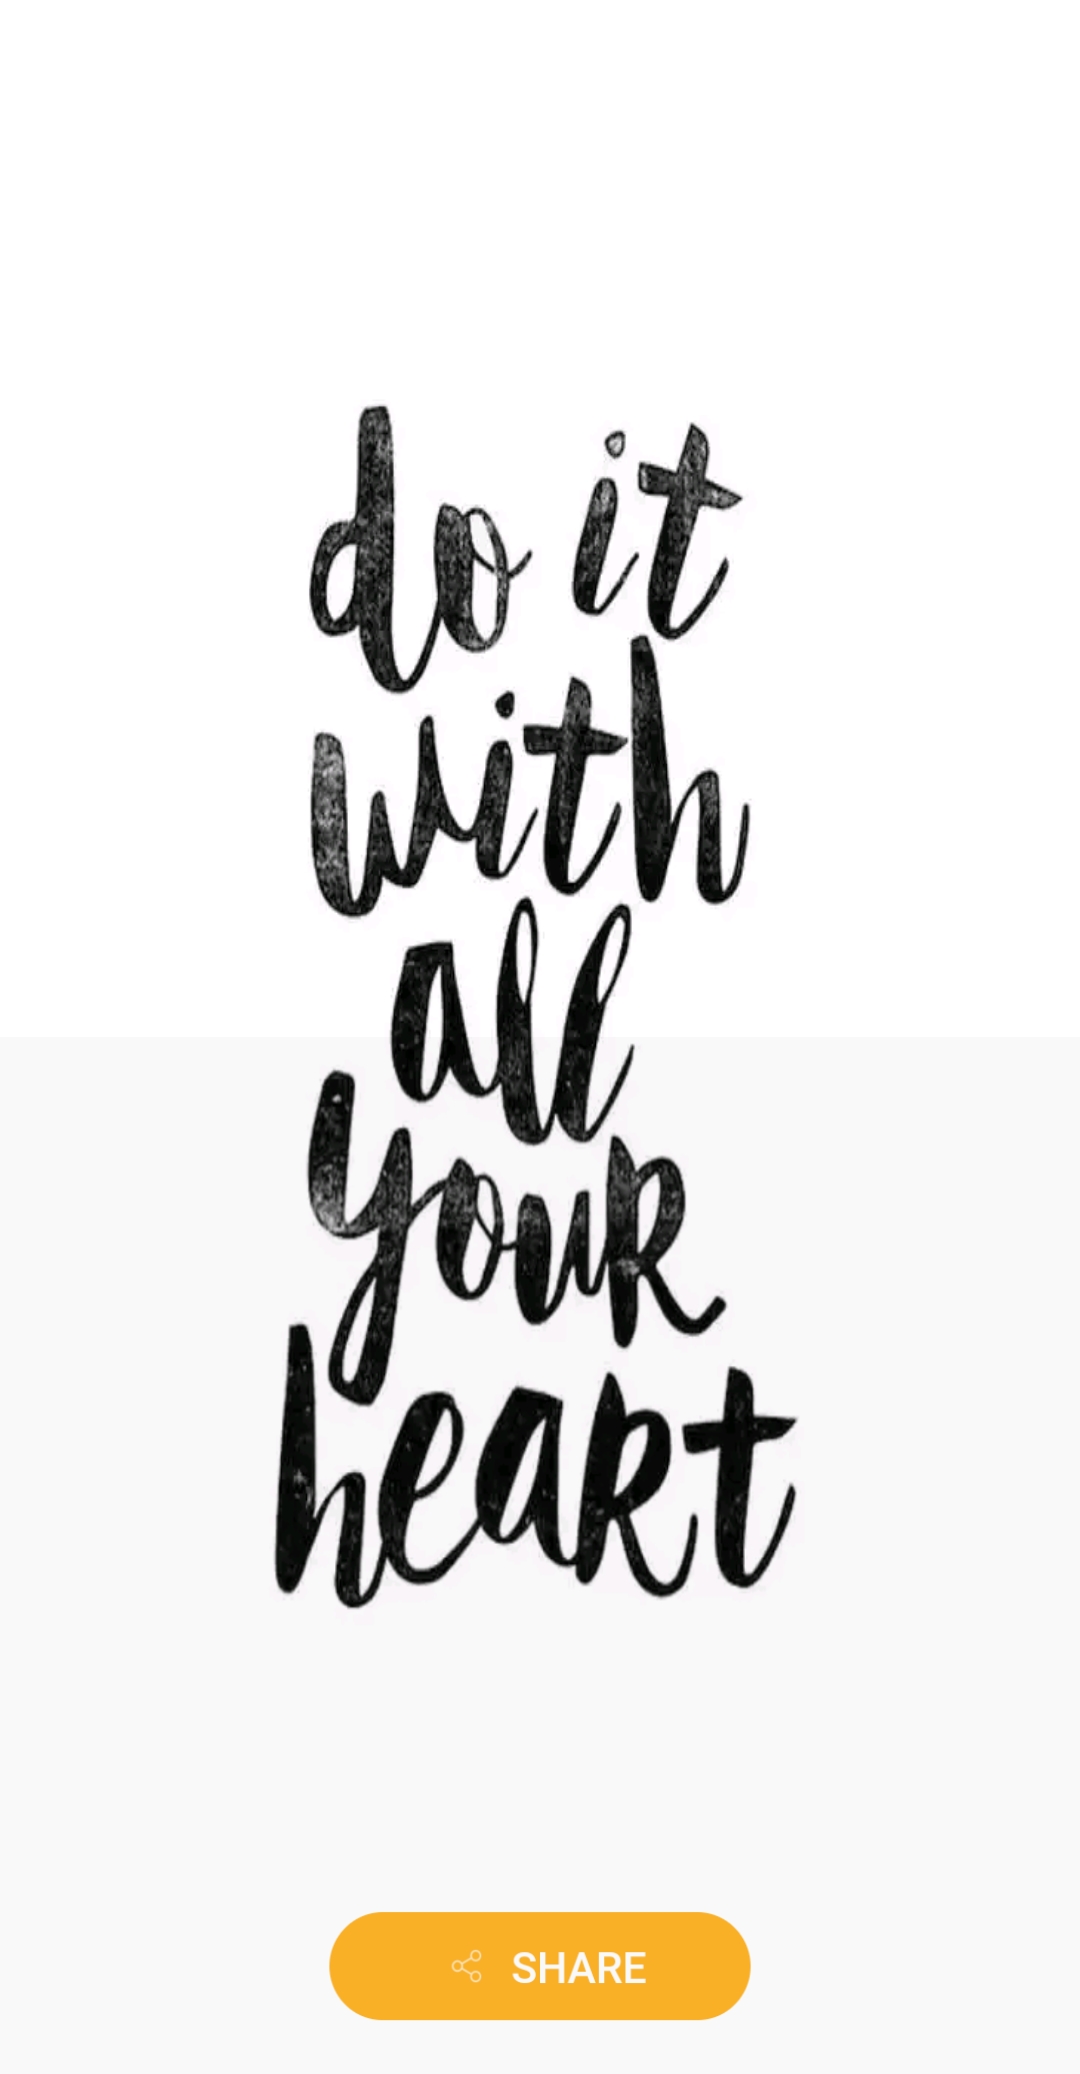 do it
with
all
your
heart
SHARE